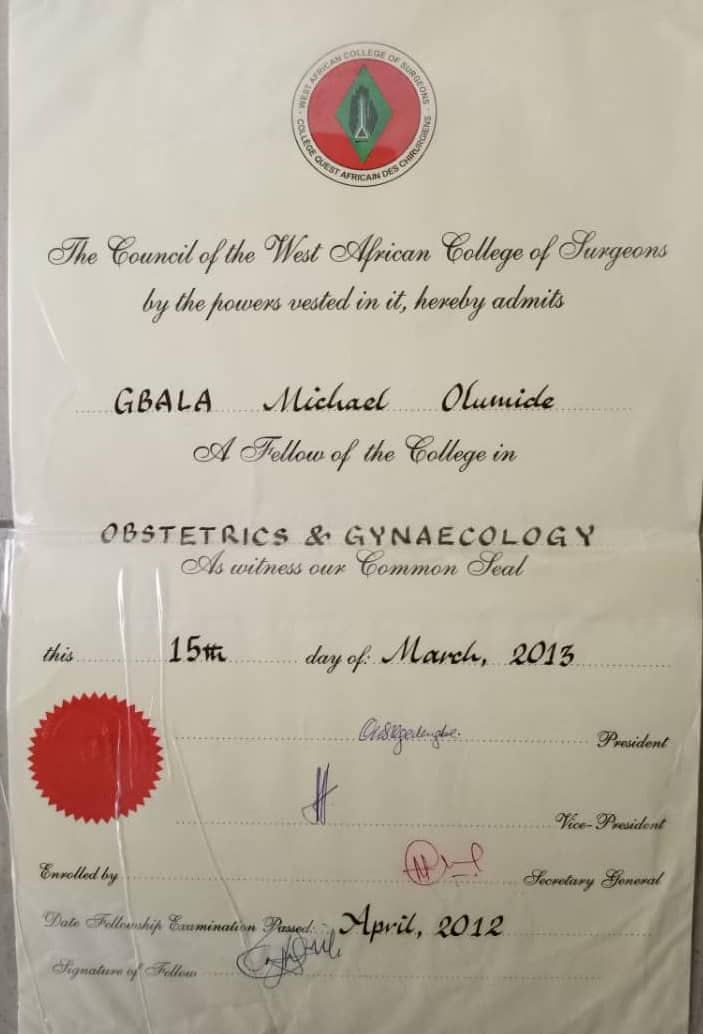 WEST AFRICAN COLLEGE OF SURGEONS
COLLEGE OUEST AFRICAIN DES CHIRURGIENS
The Council of the West African College of Surgeons
by the powers vested in it, hereby admits
GBALA Michael Olumide
A Fellow of the College in
OBSTETRICS & GYNAECOLOGY
As witness our Common Seal
this 15th day of: March, 2013
President
Vice-President
Enrolled by Secretary General
Date Fellowship Examination Passed: April, 2012
Signature of Fellow